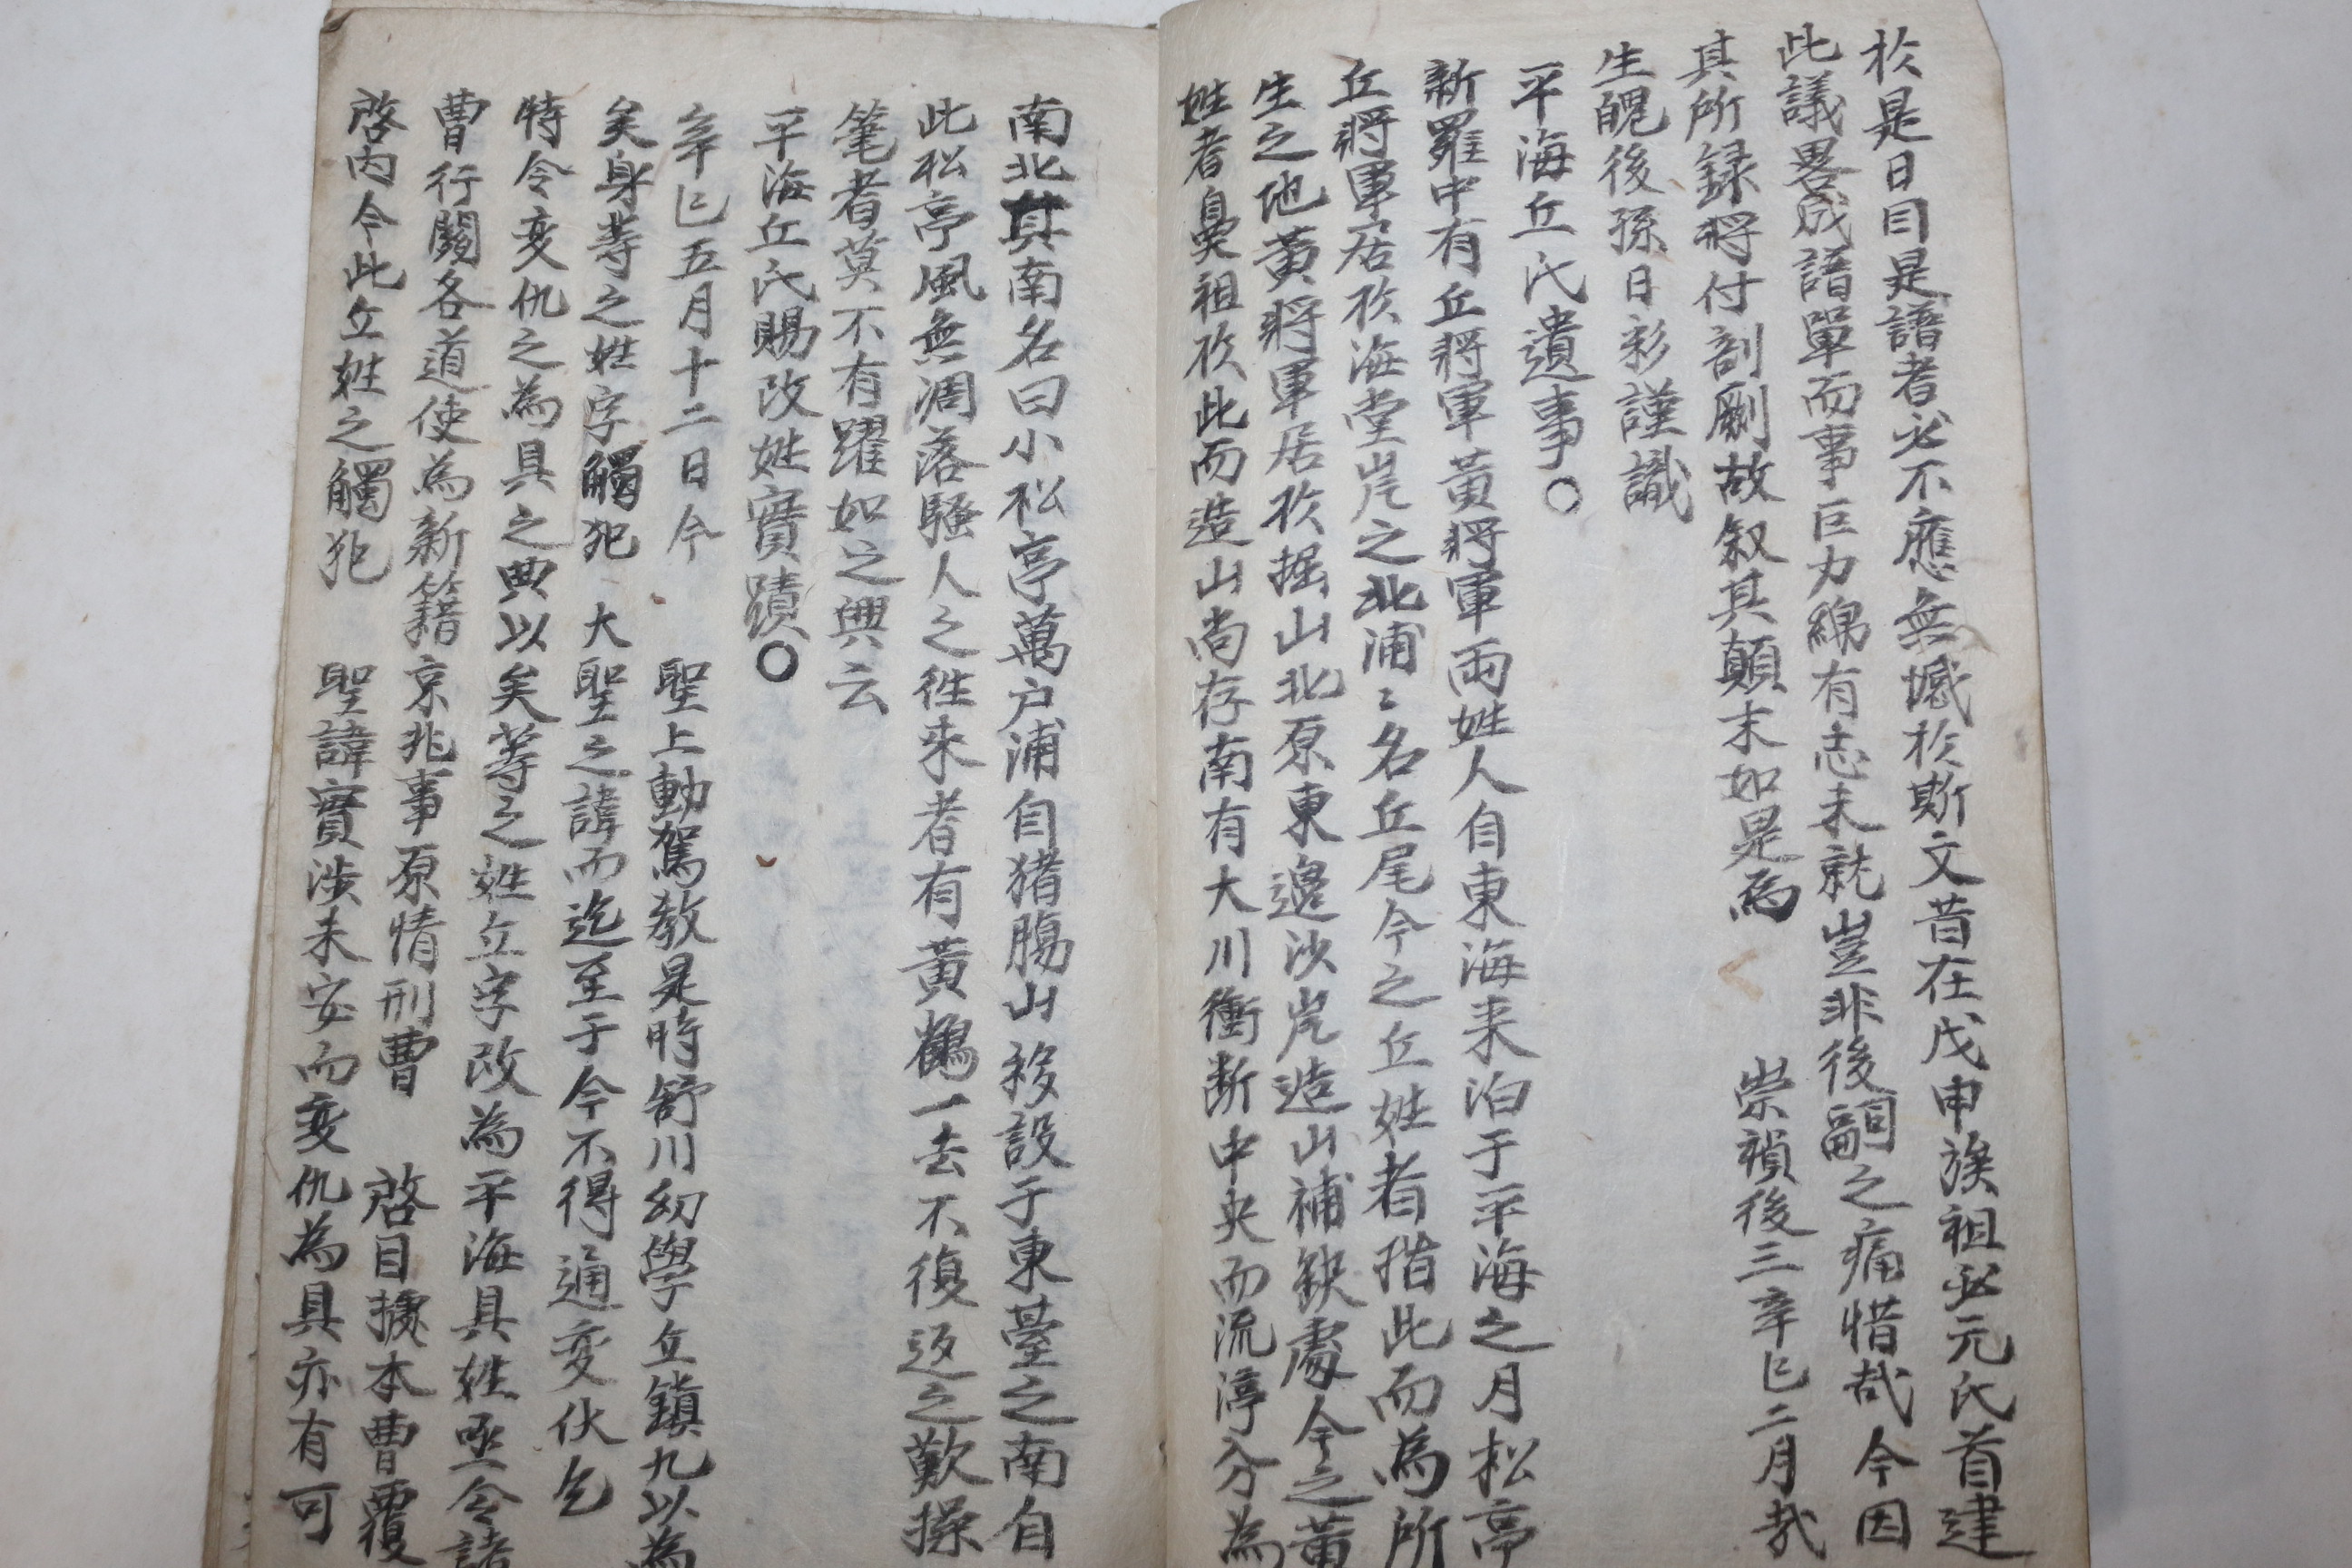 於是日目是譜者必不應無憾於斯文昔在戊申族祖必元氏首建
此議畧成譜單而事巨力綿有志未就豈非後嗣之痛惜哉今因
其所録將付剞劂故叙其顛末如是為 崇禎後三辛巳二月哉
生魄後孫日彩謹識
平海丘氏遺事○
新羅中有丘將軍黃將軍兩姓人自東海来泊于平海之月松亭
丘將軍居於海堂岸之北浦〻名丘尾今之丘姓者指此而為所
生之地黃將軍居於掘山北原東邊沙岸造山補缺處今之黃
姓者鼻祖於此而造山尚存南有大川衝断中央而流渟分為
南北其南名曰小松亭萬户浦自猪膓山移設于東臺之南自
此松亭風無凋落騷人之徃来者有黃鶴一去不復返之歎操
筆者莫不有躍如之興云
平海丘氏賜改姓實蹟○
辛巳五月十二日今 聖上動駕教是時舒川幼學丘鎮九以為
矣身等之姓字觸犯 大聖之諱而迄至于今不得通变伏乞
特令变仇之為具之典以矣等之姓丘字改為平海具姓亟令諸
曹行關各道使為新籍京兆事原情刑曹 啓目據本曹覆
啓内今此丘姓之觸犯 聖諱實涉未安而变仇為具亦有可